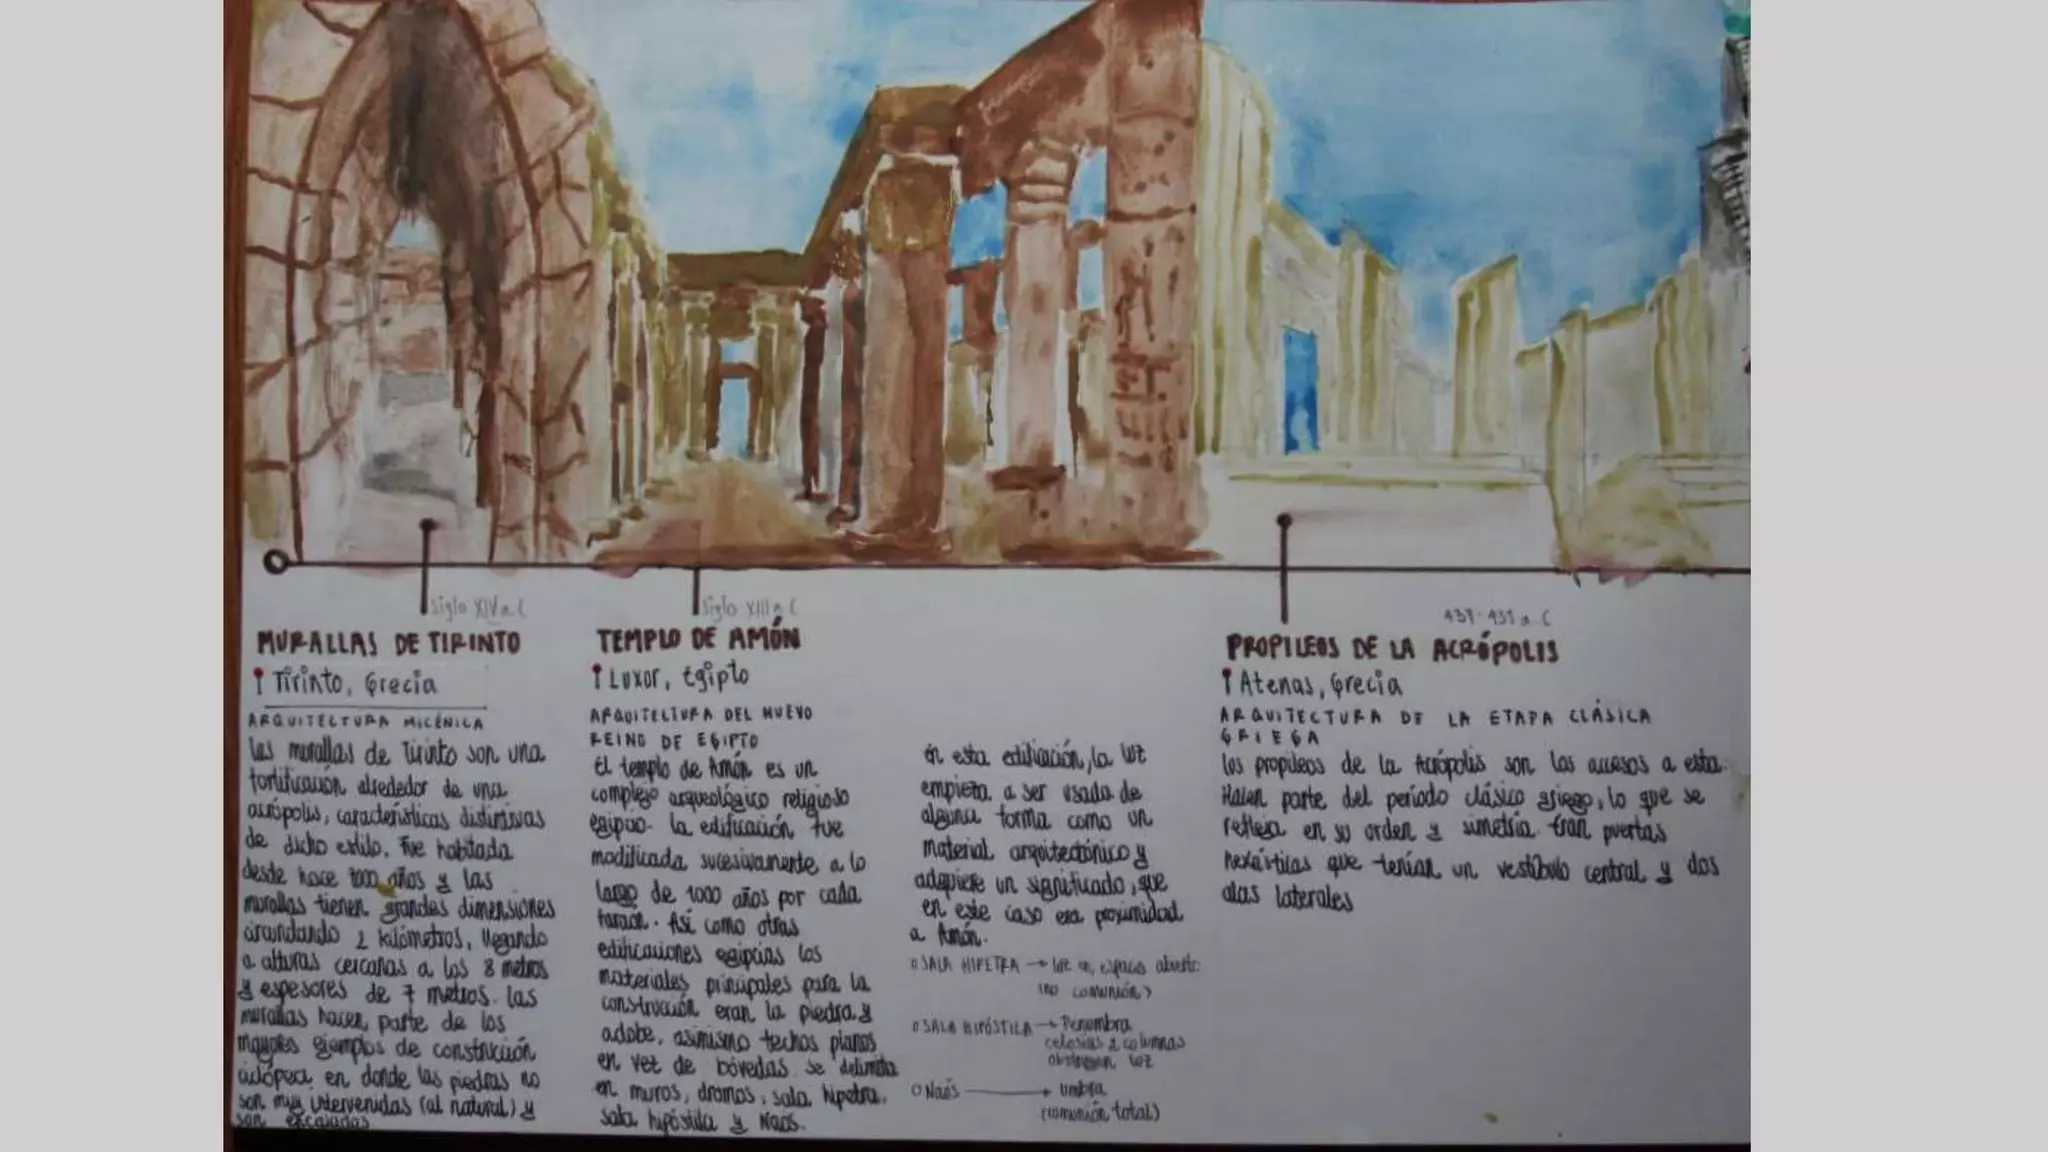 Siglo XIV a.C
MURALLAS DE TIRINTO
Tirinto, Grecia
ARQUITECTURA MICÉNICA
Las murallas de Tirinto son una
fortificación alrededor de una
acrópolis, características distintivas
de dicho estilo. Fue habitada
desde hace años y las
murallas tienen grandes dimensiones
circundando 2 kilómetros, llegando
a alturas cercanas a los 8 metros
y espesores de 7 metros. Las
murallas hacen parte de los
mayores ejemplos de construcción
ciclópea, en donde las piedras no
son muy intervenidas (al natural) y
son encajadas
Siglo XIII a.C
TEMPLO DE AMÓN
Luxor, Egipto
ARQUITECTURA DEL NUEVO
REINO DE EGIPTO
El templo de Amón es un
complejo arqueológico religioso
egipcio. La edificación fue
modificada sucesivamente a lo
largo de 1000 años por cada
faraón. Así como otras
edificaciones egipcias los
materiales principales para la
construcción eran la piedra y
adobe, asimismo techos planos
en vez de bóvedas. Se delimita
en muros, dromos, sala hipetra,
sala hipóstila y Naós.
en esta edificación, la luz
empieza a ser usada de
alguna forma como un
material arquitectónico y
adquiere un significado, que
en este caso era proximidad
a Amón.
SALA HIPETRA → luz en espacio abierto
(no comunión)
SALA HIPÓSTILA → Penumbra
celosías y columnas
obstruyen luz
Naós → umbra
(comunión total)
437-431 a.C
PROPILEOS DE LA ACRÓPOLIS
Atenas, Grecia
ARQUITECTURA DE LA ETAPA CLÁSICA
GRIEGA
Los propileos de la Acrópolis son los accesos a esta.
Hacen parte del período clásico griego, lo que se
refleja en su orden y simetría. Eran puertas
hexásticas que tenían un vestíbulo central y dos
alas laterales